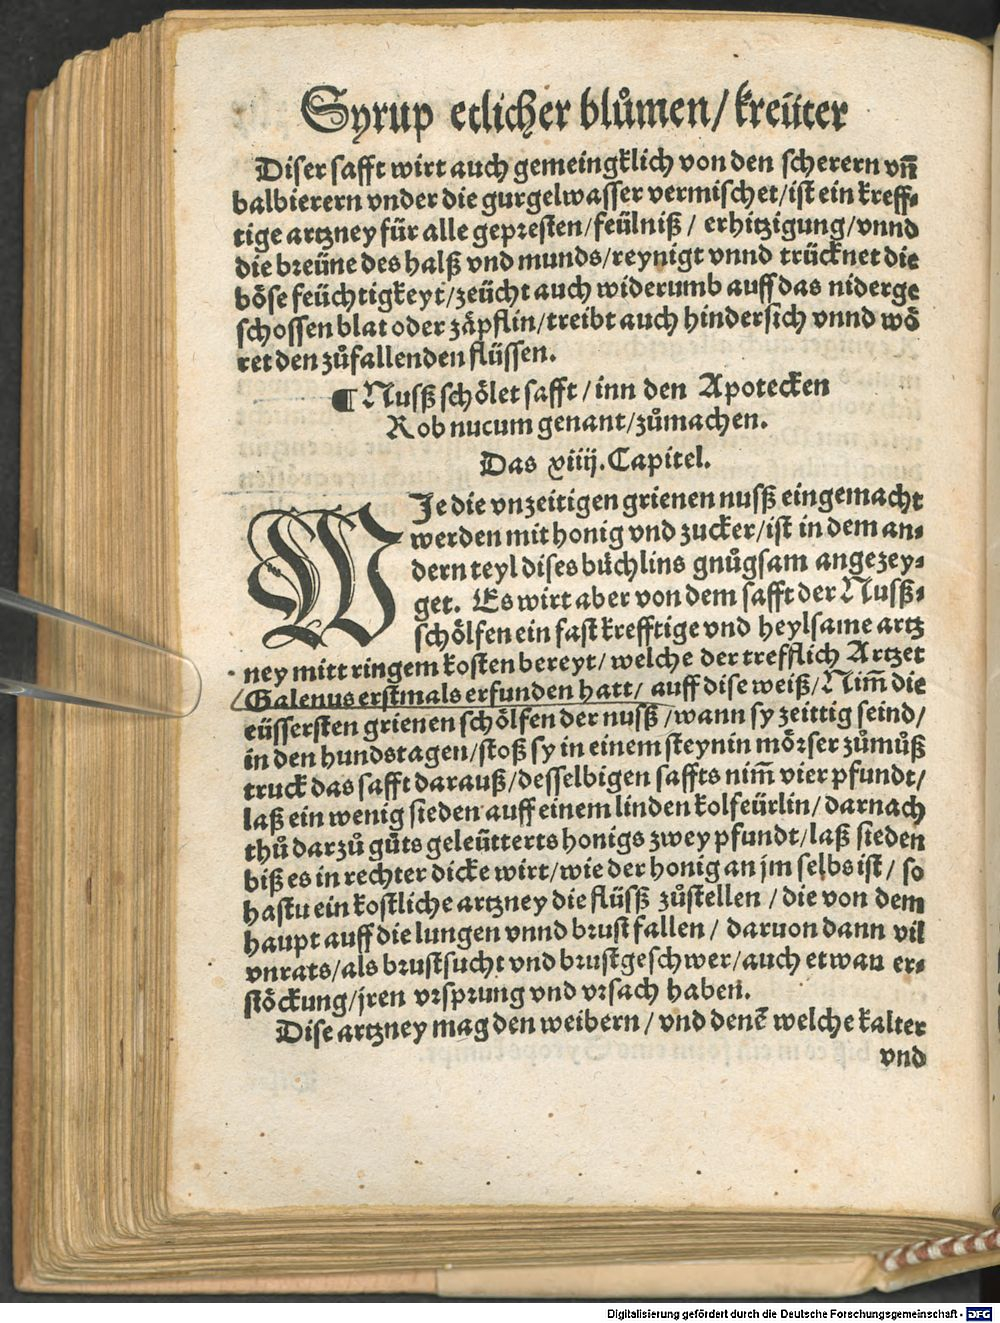 Syrup etlicher blůmen/kreüter
Diser safft wirt auch gemeingklich von den scherern vñ
balbierern vnder die gurgelwasser vermischet/ist ein kreff⸗
tige artzney für alle gepresten/feülniß/ erhitzigung/vnnd
die breüne des halß vnd munds/reynigt vnnd trücknet die
böse feüchtigkeyt/zeücht auch widerumb auff das niderge
schossen blat oder zäpflin/treibt auch hindersich vnnd wö
ret den zůfallenden flüssen.
¶ Nusßschölet safft/inn den Apotecken
Rob nucum genant/zůmachen.
Das xiiij. Capitel.
WJe die vnzeitigen grienen nusß eingemacht
werden mit honig vnd zucker/ist in dem an⸗
dern teyl dises büchlins gnůgsam angezey⸗
get. Es wirt aber von dem safft der Nusß⸗
schölfen ein fast krefftige vnd heylsame artz
ney mitt ringem kosten bereyt/welche der trefflich Artzet
Galenus erstmals erfunden hatt/ auff dise weiß/Nim̃ die
eüssersten grienen schölfen der nusß/wann sy zeittig seind/
in den hundstagen/stoß sy in einem steynin mörser zůmůß
truck das safft darauß/desselbigen saffts nim̃ vier pfundt/
laß ein wenig sieden auff einem linden kolfeürlin/darnach
thů darzů gůts geleütterts honigs zwey pfundt/laß sieden
biß es in rechter dicke wirt/wie der honig an jm selbs ist/ so
hastu ein kostliche artzney die flüsß zůstellen/die von dem
haupt auff die lungen vnnd brust fallen/ daruon dann vil
vnrats/als brustsucht vnd brustgeschwer/auch etwan er⸗
stöckung/jren vrsprung vnd vrsach haben.
Dise artzney mag den weibern/vnd denē welche kalter
vnd
Digitalisierung gefördert durch die Deutsche Forschungsgemeinschaft - DFG